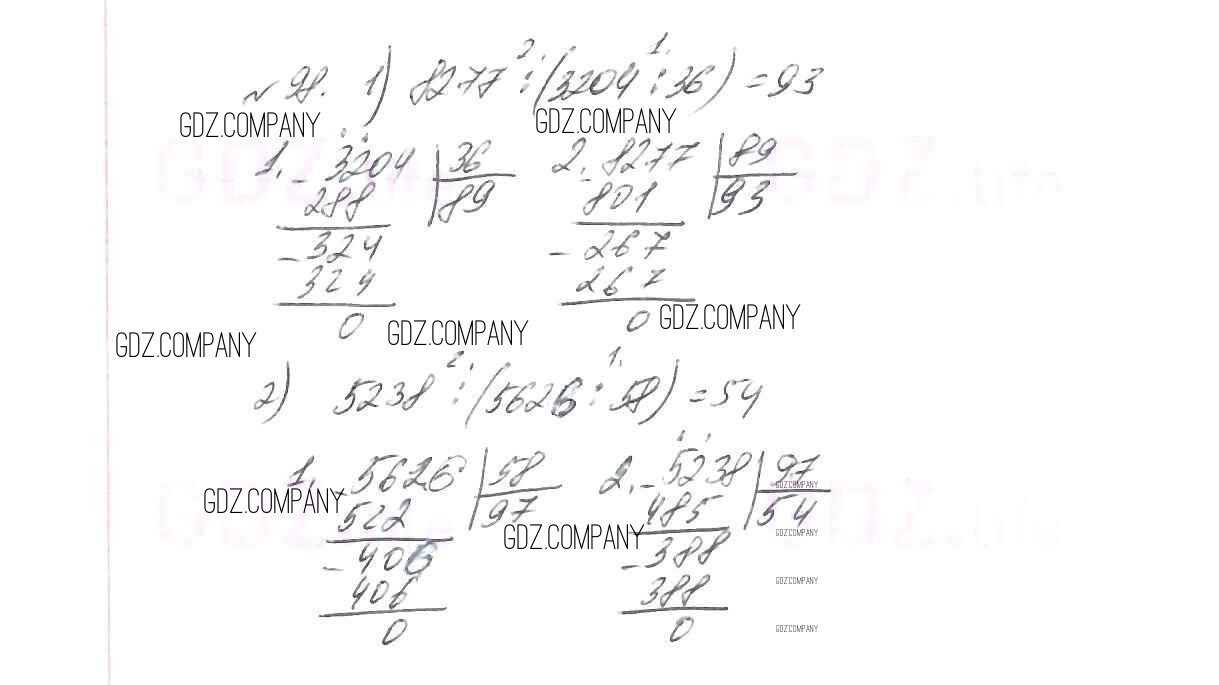 №98. 1) 8277 : (3204 : 36) = 93
GDZ.COMPANY GDZ.COMPANY
1. - 3204 | 36 2. - 8277 | 89
288 | 89 801 | 93
- 324 - 267
324 267
0 0
GDZ.COMPANY GDZ.COMPANY GDZ.COMPANY
2) 5238 : (5626 : 58) = 54
1. - 5626 | 58 2. - 5238 | 97
GDZ.COMPANY GDZ.COMPANY
522 | 97 485 | 54
GDZ.COMPANY GDZ.COMPANY
- 406 - 388
406 388
GDZ.COMPANY
0 0
GDZ.COMPANY